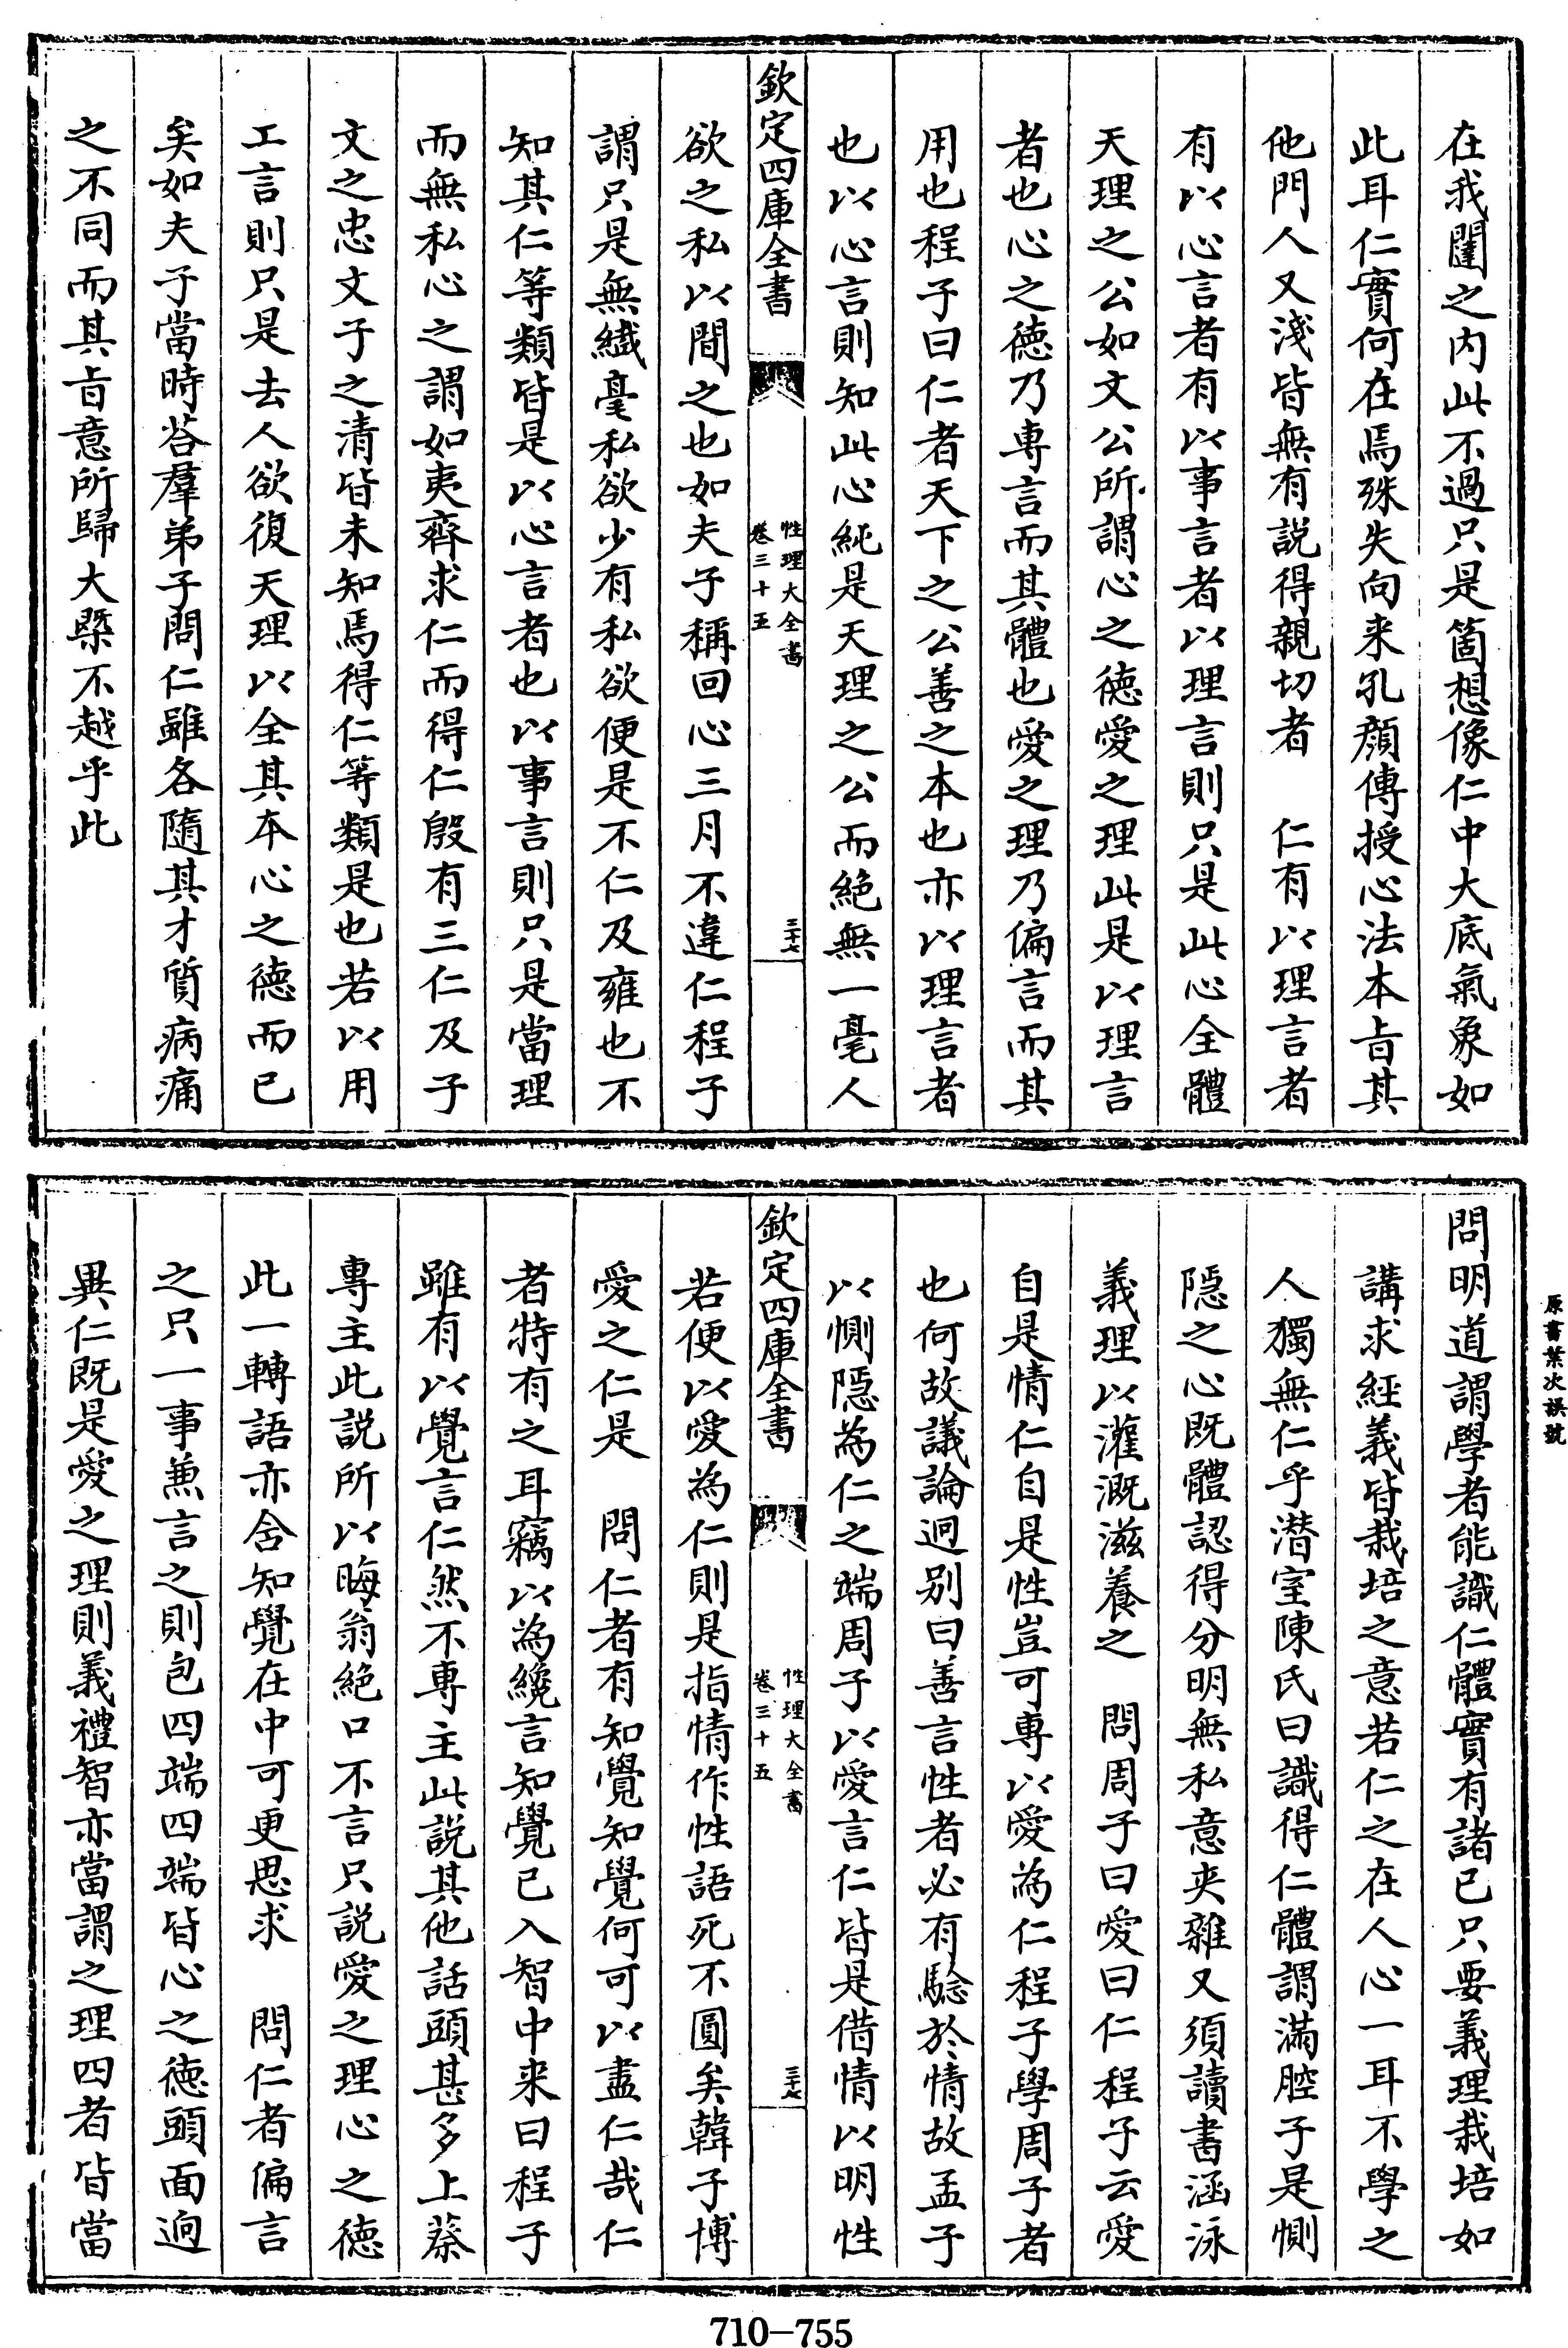 在我闥之内此不過只是箇想像仁中大底氣象如
此耳仁實何在焉殊失向来孔顔傳授心法本㫖其
他門人又淺皆無有説得親切者　仁有以理言者
有以心言者有以事言者以理言則只是此心全體
天理之公如文公所謂心之徳愛之理此是以理言
者也心之徳乃専言而其體也愛之理乃偏言而其
用也程子曰仁者天下之公善之本也亦以理言者
也以心言則知此心純是天理之公而絶無一毫人
欽定四庫全書
性理大全書
卷三十五
三十七
欲之私以間之也如夫子稱回心三月不違仁程子
謂只是無纎毫私欲少有私欲便是不仁及雍也不
知其仁等類皆是以心言者也以事言則只是當理
而無私心之謂如夷齊求仁而得仁殷有三仁及子
文之忠文子之清皆未知焉得仁等類是也若以用
工言則只是去人欲復天理以全其本心之徳而已
矣如夫子當時荅羣弟子問仁雖各隨其才質病痛
之不同而其㫖意所歸大槩不越乎此
問明道謂學者能識仁體實有諸已只要義理栽培如
講求經義皆栽培之意若仁之在人心一耳不學之
人獨無仁乎潛室陳氏曰識得仁體謂滿腔子是惻
隱之心既體認得分明無私意夾雜又須讀書涵泳
義理以灌溉滋養之　問周子曰愛曰仁程子云愛
自是情仁自是性豈可専以愛為仁程子學周子者
也何故議論迥别曰善言性者必有驗於情故孟子
以惻隱為仁之端周子以愛言仁皆是借情以明性
欽定四庫全書
性理大全書
卷三十五
三十七
若便以愛為仁則是指情作性語死不圓矣韓子博
愛之仁是　問仁者有知覺知覺何可以盡仁哉仁
者特有之耳竊以為纔言知覺已入智中来曰程子
雖有以覺言仁然不専主此説其他話頭甚多上蔡
専主此説所以晦翁絶口不言只説愛之理心之徳
此一轉語亦舍知覺在中可更思求　問仁者偏言
之只一事兼言之則包四端四端皆心之徳頭面逈
異仁既是愛之理則義禮智亦當謂之理四者皆當
原書葉次誤號
710-755